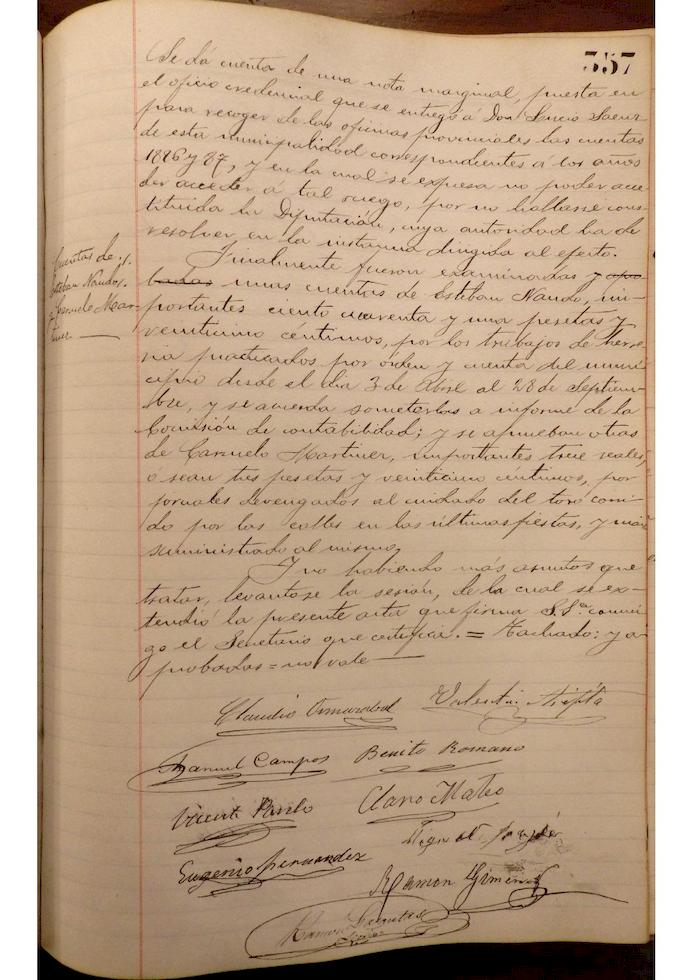 357
Se dá cuenta de una nota marginal, puesta en
el oficio credencial que se entregó á Don Lucio Saenz
para recoger de las oficinas provinciales las cuentas
de esta municipalidad correspondientes á los años
1886 y 87, y en la cual se expresa no poder acce-
der acceder á tal ruego, por no hallarse cons-
tituida la Diputación, cuya autoridad ha de
resolver en la instancia dirigida al efecto.
Cuentas de
Esteban Nando y
Carmelo Mar-
tinez
Finalmente fueron examinadas y apro-
badas unas cuentas de Esteban Nando, im-
portantes ciento cuarenta y una pesetas y
veinticinco céntimos, por los trabajos de herre-
ria practicados por órden y cuenta del muni-
cipio desde el dia 3 de Abre al 28 de Septiem-
bre, y se acuerda someterlas a informe de la
Comisión de contabilidad; y se aprueban otras
de Carmelo Martinez, importantes trece reales,
ó sean tres pesetas y veinticinco centimos, por
jornales devengados al cuidado del toro corri-
do por las calles en las últimas fiestas, y
suministrado al mismo.
Y no habiendo más asuntos que
tratar, levantose la sesión, de la cual se ex-
tendió la presente acta que firma S.Sª. conmi-
go el Secretario que certifica. = Tachado: y a-
probadas = no vale
Claudio Valentin
Manuel Campos Benito Romano
Vicente Claro Mateo
Miguel
Eugenio Fernandez
Ramon Gimenez
Ramon